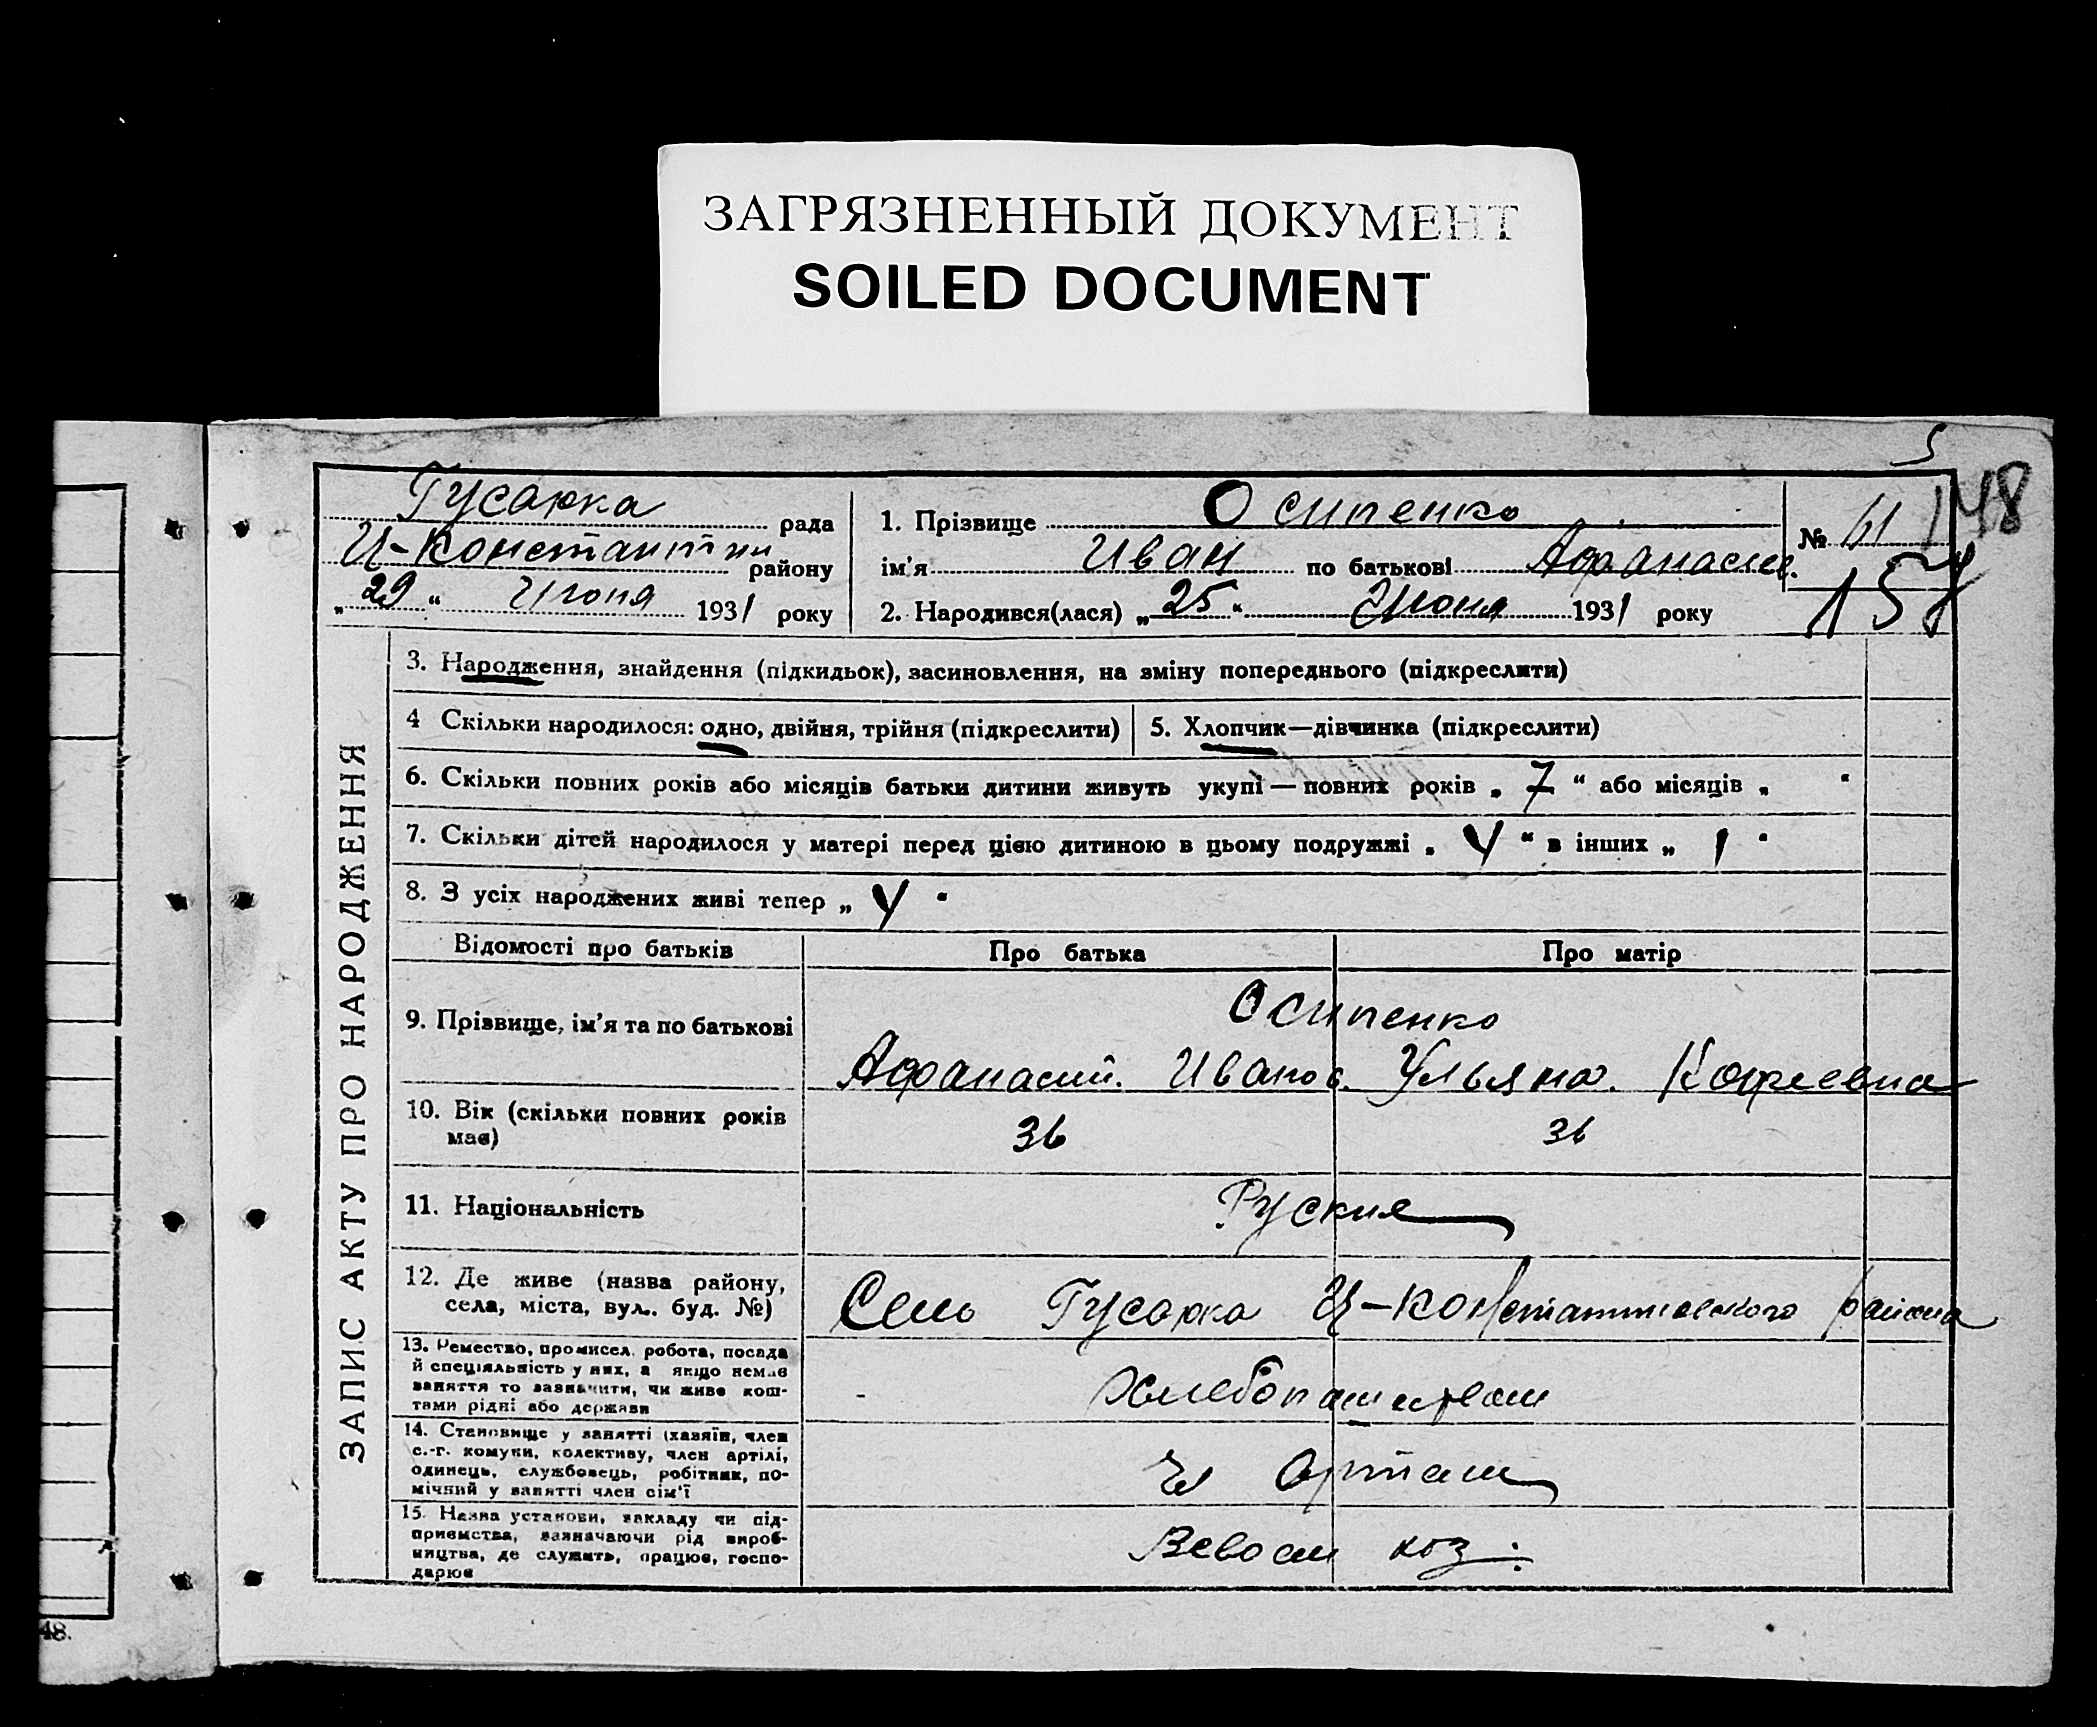 ЗАГРЯЗНЕННЫЙ ДОКУМЕНТ
SOILED DOCUMENT
5
148
Гусарка рада
Ц-Константин району
„29“ Июня 1931 року
1. Прізвище Осипенко
ім'я Иван по батькові Афанасие.
2. Народився(лася) „25“ Июня 1931 року
№ 61
157
ЗАПИС АКТУ ПРО НАРОДЖЕННЯ
3. Народження, знайдення (підкидьок), засиновлення, на зміну попереднього (підкреслити)
4 Скільки народилося: одно, двійня, трійня (підкреслити)
5. Хлопчик—дівчинка (підкреслити)
6. Скільки повних років або місяців батьки дитини живуть укупі — повних років „ 7 “ або місяців „ “
7. Скільки дітей народилося у матері перед цією дитиною в цьому подружжі „ 4 “ в інших „ 1 “
8. З усіх народжених живі тепер „ 4 “
Відомості про батьків
Про батька
Про матір
9. Прізвище, ім'я та по батькові
Осипенко
Афанасий. Иванов. Ульяна.
10. Вік (скільки повних років
має)
36
36
11. Національність
Руские
12. Де живе (назва району,
села, міста, вул., буд. №)
Село Гусарка Ц-Константиновского района
13. Ремество, промисел, робота, посада
й спеціяльність у них, а якщо немає
заняття то зазначити, чи живе кош-
тами рідні або держави
Хлебопашество
14. Становище у занятті (хазяїн, член
с.-г. комуни, колективу, член артілі,
одинець, службовець, робітник, по-
мічний у занятті член сім'ї
Чл Артели
15. Назва установи, закладу чи під-
приємства, зазначаючи рід вироб-
ництва, де служить, працює, госпо-
дарює
48.